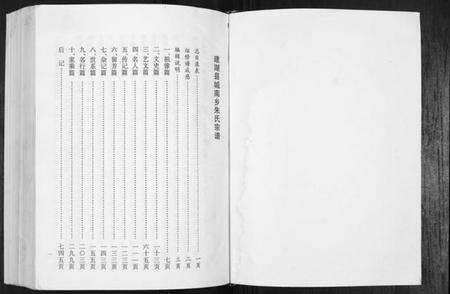 建湖县城南乡朱氏宗谱
总目录表……一页
编修谱成员……二页
编辑说明……三页
一、祖像篇……七页
二、文史篇……一十三页
三、艺文篇……六十五页
四、名人篇……一一一页
五、传记篇……一二三页
六、留芳篇……一三三页
七、杂记篇……一四三页
八、世系篇……一五五页
九、名行篇……二〇三页
十、家乘篇……二九九页
后记……七四五页